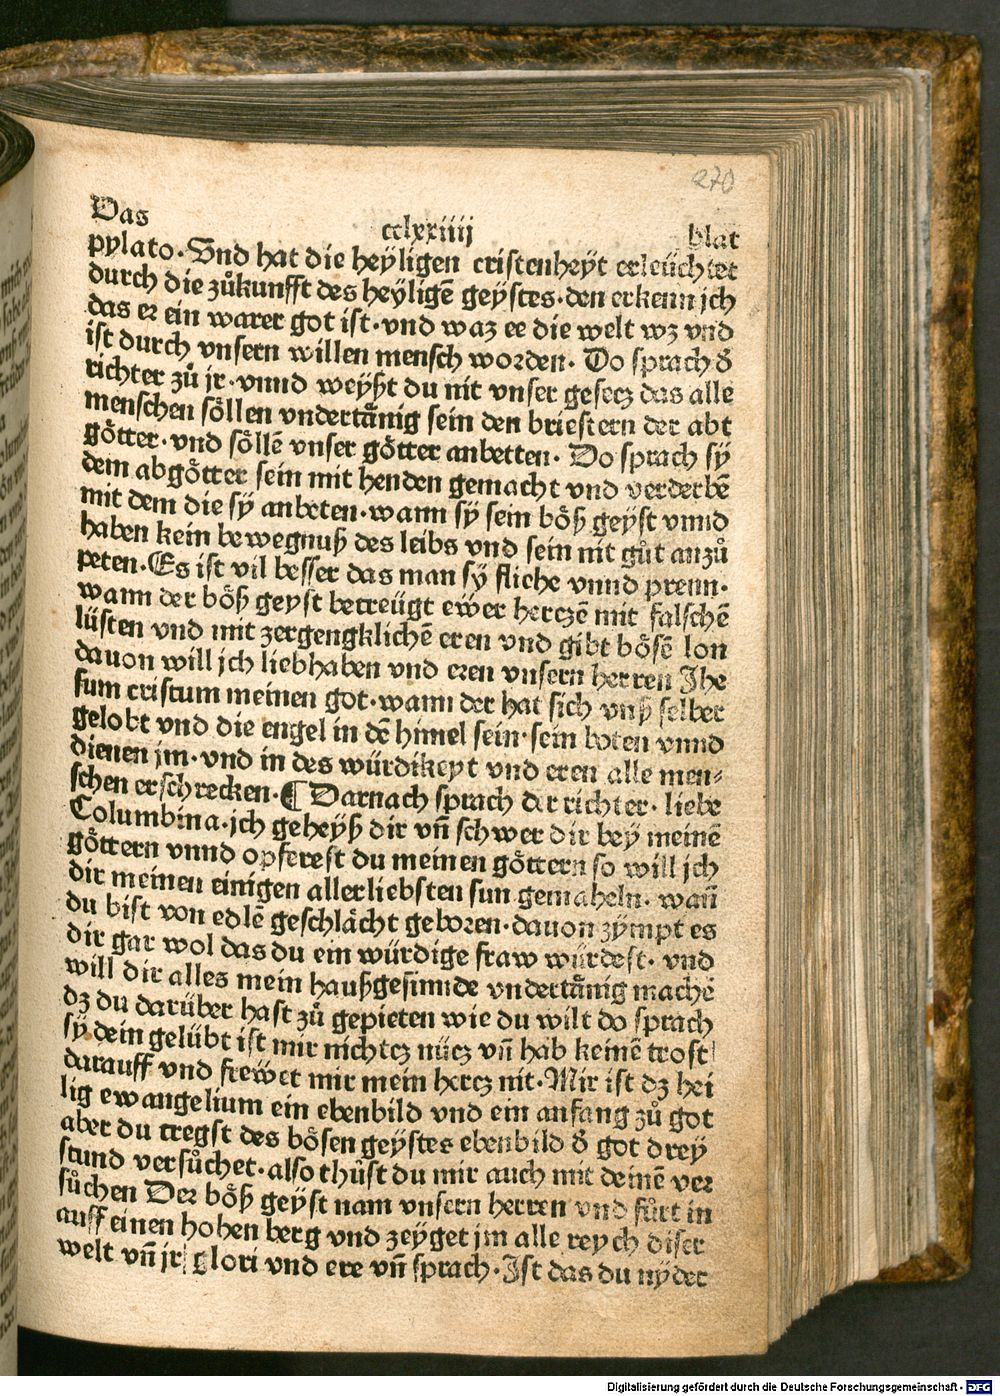 270
Das cclxxiiij blat
pylato. Vnd hat die heÿligen cristenheÿt erleüchtet
durch die zůkunfft des heÿligē geÿstes. den erkenn jch
das er ein warer got ist. vnd waz ee die welt wz vnd
ist durch vnsern willen mensch worden. Do sprach ð
richter zů jr. vnnd weÿßt du nit vnser gesecz das alle
menschen söllen vndertänig sein den briestern der abt
götter. vnd söllē vnser götter anbetten. Do sprach sÿ
dem abgötter sein mit henden gemacht vnd verderbē
mit dem die sÿ anbeten. wann sÿ sein böß geÿst vnnd
haben kein bewegnuß des leibs vnd sein nit gůt anzů
peten. Es ist vil besser das man sÿ fliehe vnnd prenn.
wann der böß geyst betreügt ewer herczē mit falschē
lüsten vnd mit zergengklichē eren vnd gibt bösē lon
dauon will jch liebhaben vnd eren vnsern herren Ihe
sum cristum meinen got. wann der hat sich vnß selber
gelobt vnd die engel in dē himel sein. sein boten vnnd
dienen jm. vnd in des würdikeyt vnd eren alle men⸗
schen erschrecken. ¶ Darnach sprach der richter. liebe
Columbina. jch geheÿß dir vn̄ schwer dir beÿ meinē
göttern vnnd opferest du meinen göttern so will jch
dir meinen einigen allerliebsten sun gemaheln. wan̄
du bist von edlē geschlächt geboren. dauon zÿmpt es
dir gar wol das du ein würdige fraw würdest. vnd
will dir alles mein haußgesinnde vndertänig machē
dz du darüber hast zů gepieten wie du wilt do sprach
sÿ dein gelübt ist mir nichtcz nücz vn̄ hab keinē trost
darauff vnd frewet mir mein hercz nit. Mir ist dz hei
lig ewangelium ein ebenbild vnd ein anfang zů got
aber du tregst des bösen geÿstes ebenbild ð got dreÿ
stund versůchet. also thůst du mir auch mit deinē ver
sůchen Der böß geÿst nam vnsern herren vnd fůrt in
auff einen hohen berg vnd zeÿget jm alle reych diser
welt vn̄ jr glori vnd ere vn̄ sprach. Ist das du nÿder
Digitalisierung gefördert durch die Deutsche Forschungsgemeinschaft - DFG